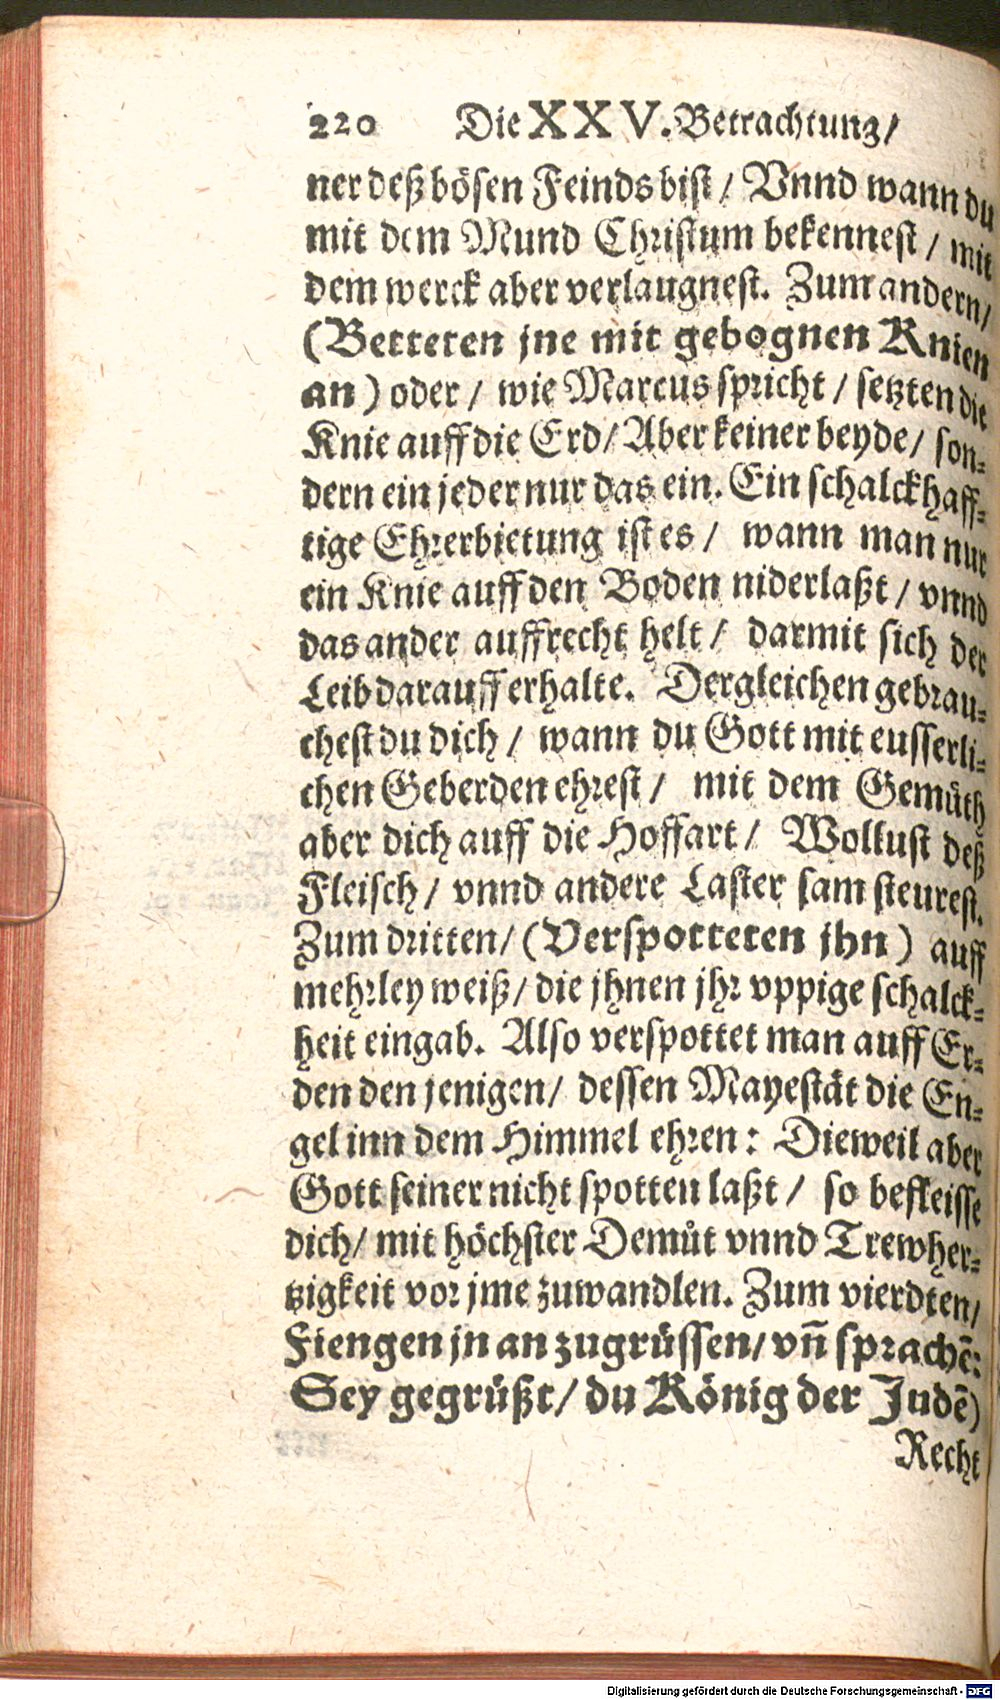 220 Die XXV. Betrachtung/
ner deß bösen Feinds bist/ Vnnd wann du
mit dem Mund Christum bekennest/ mit
dem werck aber verlaugnest. Zum andern/
(Betteten jne mit gebognen Knien
an) oder/ wie Marcus spricht/ setzten die
Knie auff die Erd/ Aber keiner beyde/ son-
dern ein jeder nur das ein. Ein schalckhaff-
tige Ehrerbietung ist es/ wann man nur
ein Knie auff den Boden niderlaßt/ vnnd
das ander auffrecht helt/ darmit sich der
Leib darauff erhalte. Dergleichen gebrau-
chest du dich/ wann du Gott mit eusserli-
chen Geberden ehrest/ mit dem Gemüth
aber dich auff die Hoffart/ Wollust deß
Fleisch/ vnnd andere Laster sam steurest.
Zum dritten/ (Verspotteten jhn) auff
mehrley weiß/ die jhnen jhr vppige schalck-
heit eingab. Also verspottet man auff Er-
den den jenigen/ dessen Mayestät die En-
gel inn dem Himmel ehren: Dieweil aber
Gott seiner nicht spotten laßt/ so befleisse
dich/ mit höchster Demůt vnnd Trewher-
tzigkeit vor jme zuwandlen. Zum vierdten/
Fiengen jn an zugrüssen/ vñ sprachẽ:
Sey gegrüßt/ du König der Judẽ)
Recht
Digitalisierung gefördert durch die Deutsche Forschungsgemeinschaft - DFG